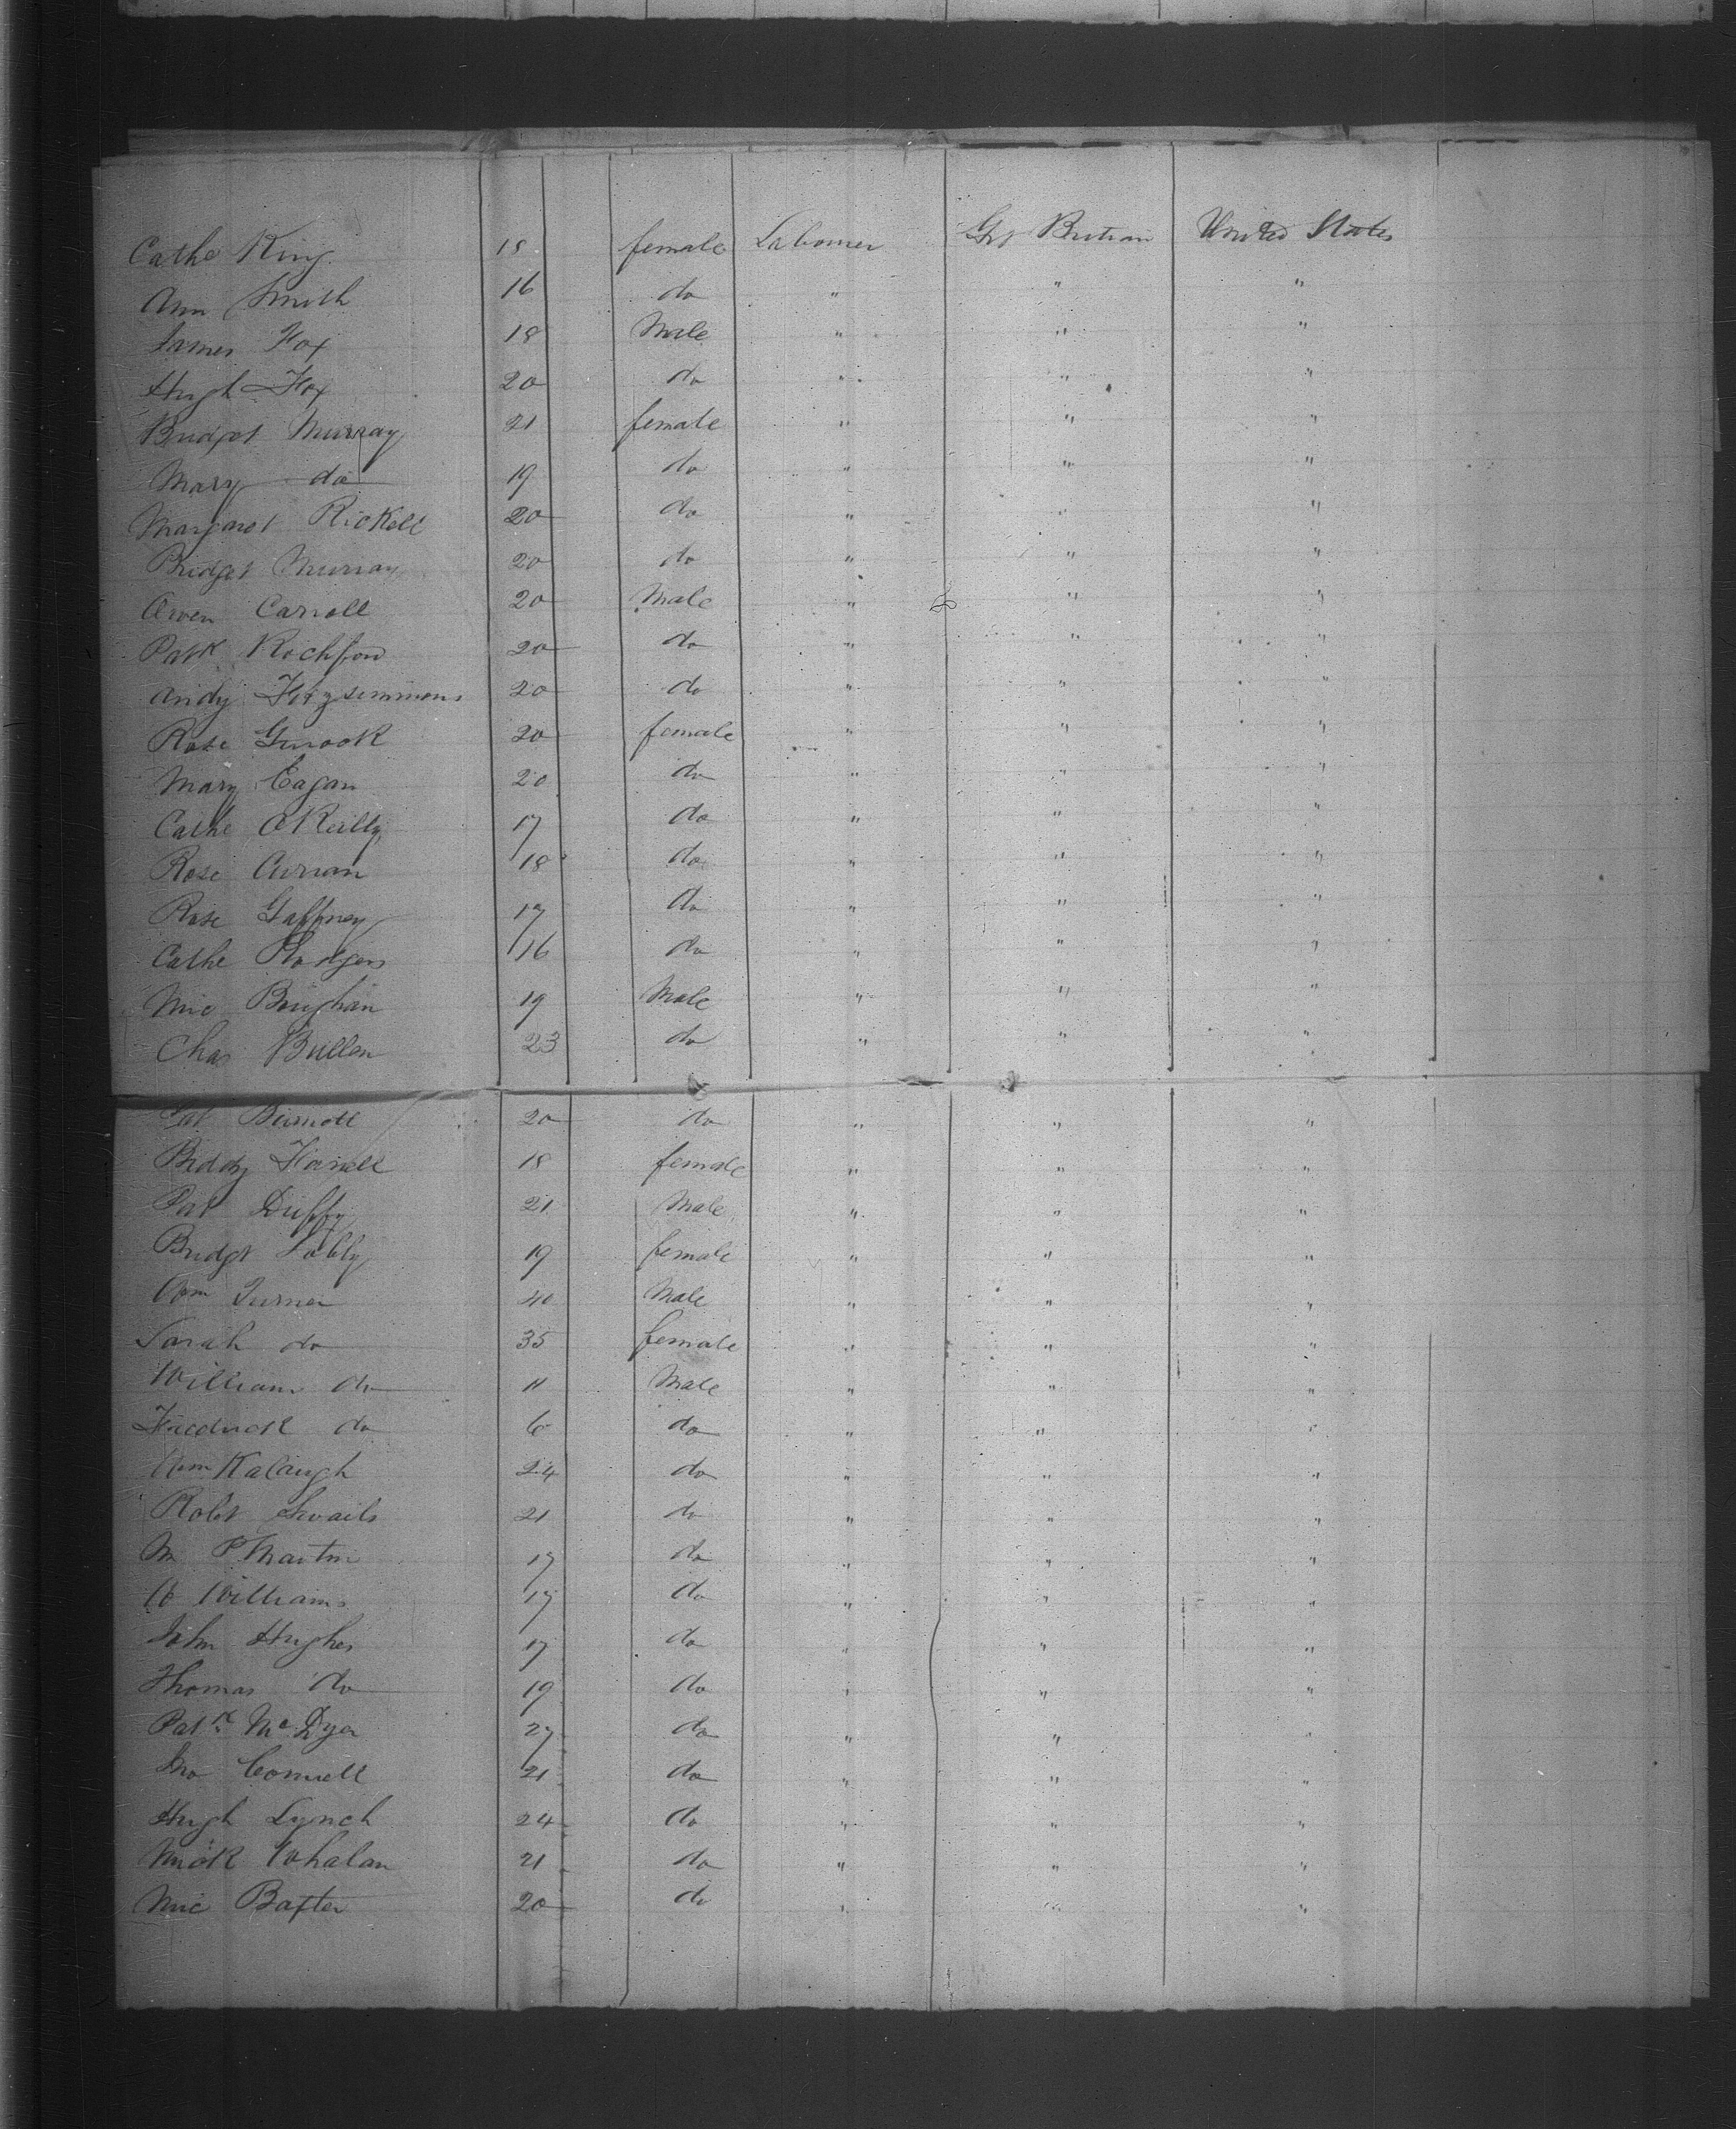 Cathe King 18 female Labourer Gt Britain United States
Ann Smith 16 do " " "
James Fox 18 Male " " "
Hugh Fox 20 do " " "
Bridget Murray 21 female " " "
Mary do 19 do " " "
Margaret Rickell 20 do " " "
Bridget Murray 20 do " " "
Owen Carroll 20 Male " " "
Patk Rochford 20 do " " "
Andy Fitzsimmons 20 do " " "
Rose 20 female " " "
Mary Eagan 20 do " " "
Cathe OReilly 17 do " " "
Rose Curran 18 do " " "
Rose Gaffney 17 do " " "
Cathe Rodgers 16 do " " "
Mic Boughan 19 Male " " "
Chas Bullen 23 do " " "
Pat 20 do " " "
Biddy Farrell 18 female " " "
Pat Duffy 21 Male " " "
Bridgt 19 female " " "
Wm Turner 40 Male " " "
Sarah do 35 female " " "
William do 11 Male " " "
Fredrick do 6 do " " "
Wm Kalaugh 24 do " " "
Robt Swails 21 do " " "
M P Martin 17 do " " "
W Williams 17 do " " "
John Hughes 17 do " " "
Thomas do 19 do " " "
Patk McDyer 27 do " " "
Jno Connell 21 do " " "
Hugh Lynch 24 do " " "
Mick Whalan 21 do " " "
Mic Baxter 20 do " " "